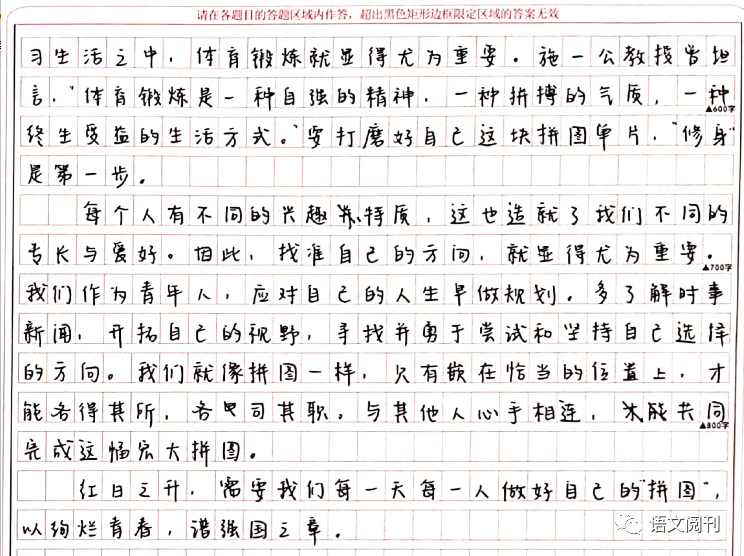 请在各题目的答题区域内作答，超出黑色矩形边框限定区域的答案无效
习生活之中，体育锻炼就显得尤为重要。施一公教授曾坦
言，“体育锻炼是一种自强的精神，一种拼搏的气质，一种
▲600字
终生受益的生活方式。”要打磨好自己这块拼图单片，“修身”
是第一步。
每个人有不同的兴趣特质，这也造就了我们不同的
专长与爱好。因此，找准自己的方向，就显得尤为重要。
▲700字
我们作为青年人，应对自己的人生早做规划。多了解时事
新闻，开拓自己的视野，寻找并勇于尝试和坚持自己选择
的方向。我们就像拼图一样，只有嵌在恰当的位置上，才
能各得其所，各司其职。与其他人心手相连，才能共同
▲800字
完成这幅宏大拼图。
红日之升，需要我们每一天每一人做好自己的“拼图”，
以绚烂青春，谱强国之章。
语文阅刊